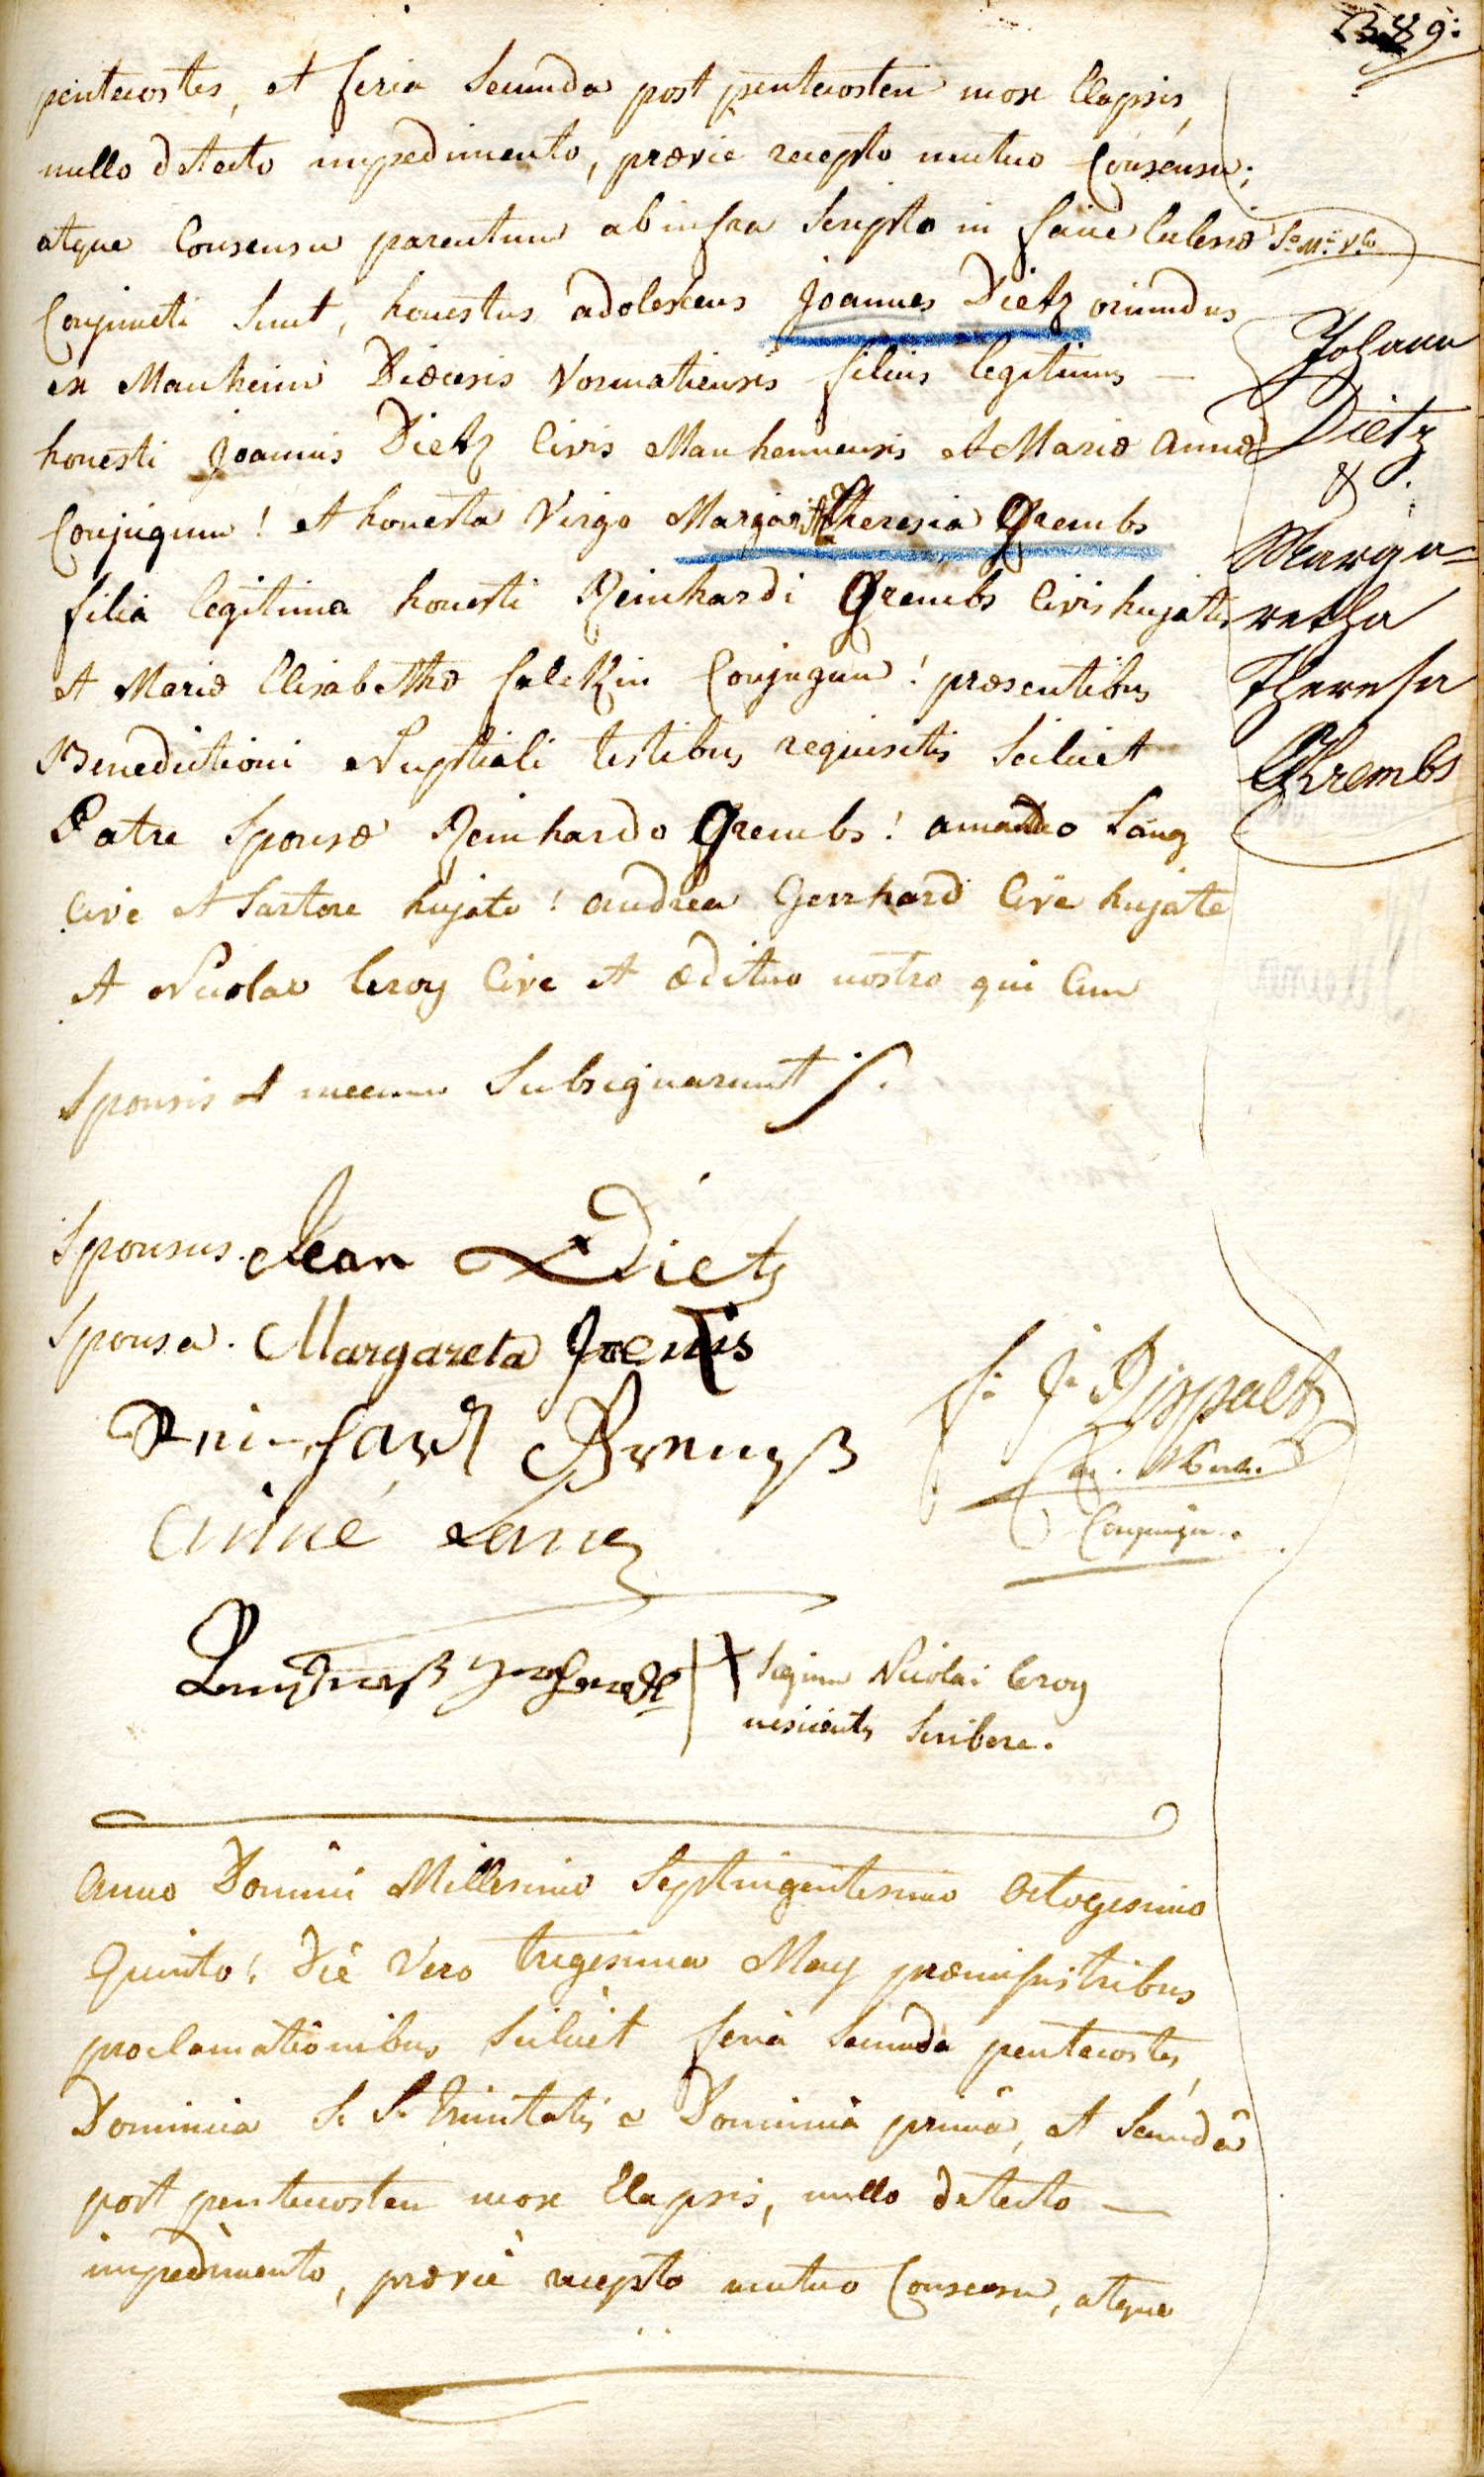 389:
pentecostes, et feria secunda post pentecosten mox Elapsis,
nullo detecto impedimento, prævie recepto mutuo Consensu;
atque Consensu parentum ab infra scripto in facie Eclesiæ
Conjuncti sunt, honestus adolescens Joannes Dietz oriundus
ex Manheim Diœcesis Vormatiensis filius legitimus —
honesti Joannis Dietz Civis Manhemiensis et Mariæ Annæ
Conjugum! et honesta Virgo Margaritha Theresia Grembs
filia legitima honesti Reinhardi Grembs Civis hujatis
et Mariæ Elisabethæ Conjugum! præsentibus
Benedictioni Nuptiali testibus requisitis scilicet
Patre sponsæ Reinhardo Grembs! amando Lang
Cive et Sartore hujate! andrea Gerrhard Cive hujate
et Nicolao leroy Cive et ædituo nostro qui Cum
sponsis et mecum subsignarunt
Johann
Dietz
&.
Marga=
retha
Theresa
Grembs
sponsus. Jean Dietz
sponsa. Margareta
Lang
signum Nicolai leroy
nescientis scribere.
Anno Domini Millesimo septingentesimo octogesimo
Quinto! Die Vero trigesima May præmissis tribus
proclamationibus scilicet feria secunda pentecostes,
Dominica S. S. Trinitatis et Dominicâ primâ, et secundâ
post pentecosten mox Elapsis, nullo detecto —
impedimento, prævie recepto mutuo Consensu, atque